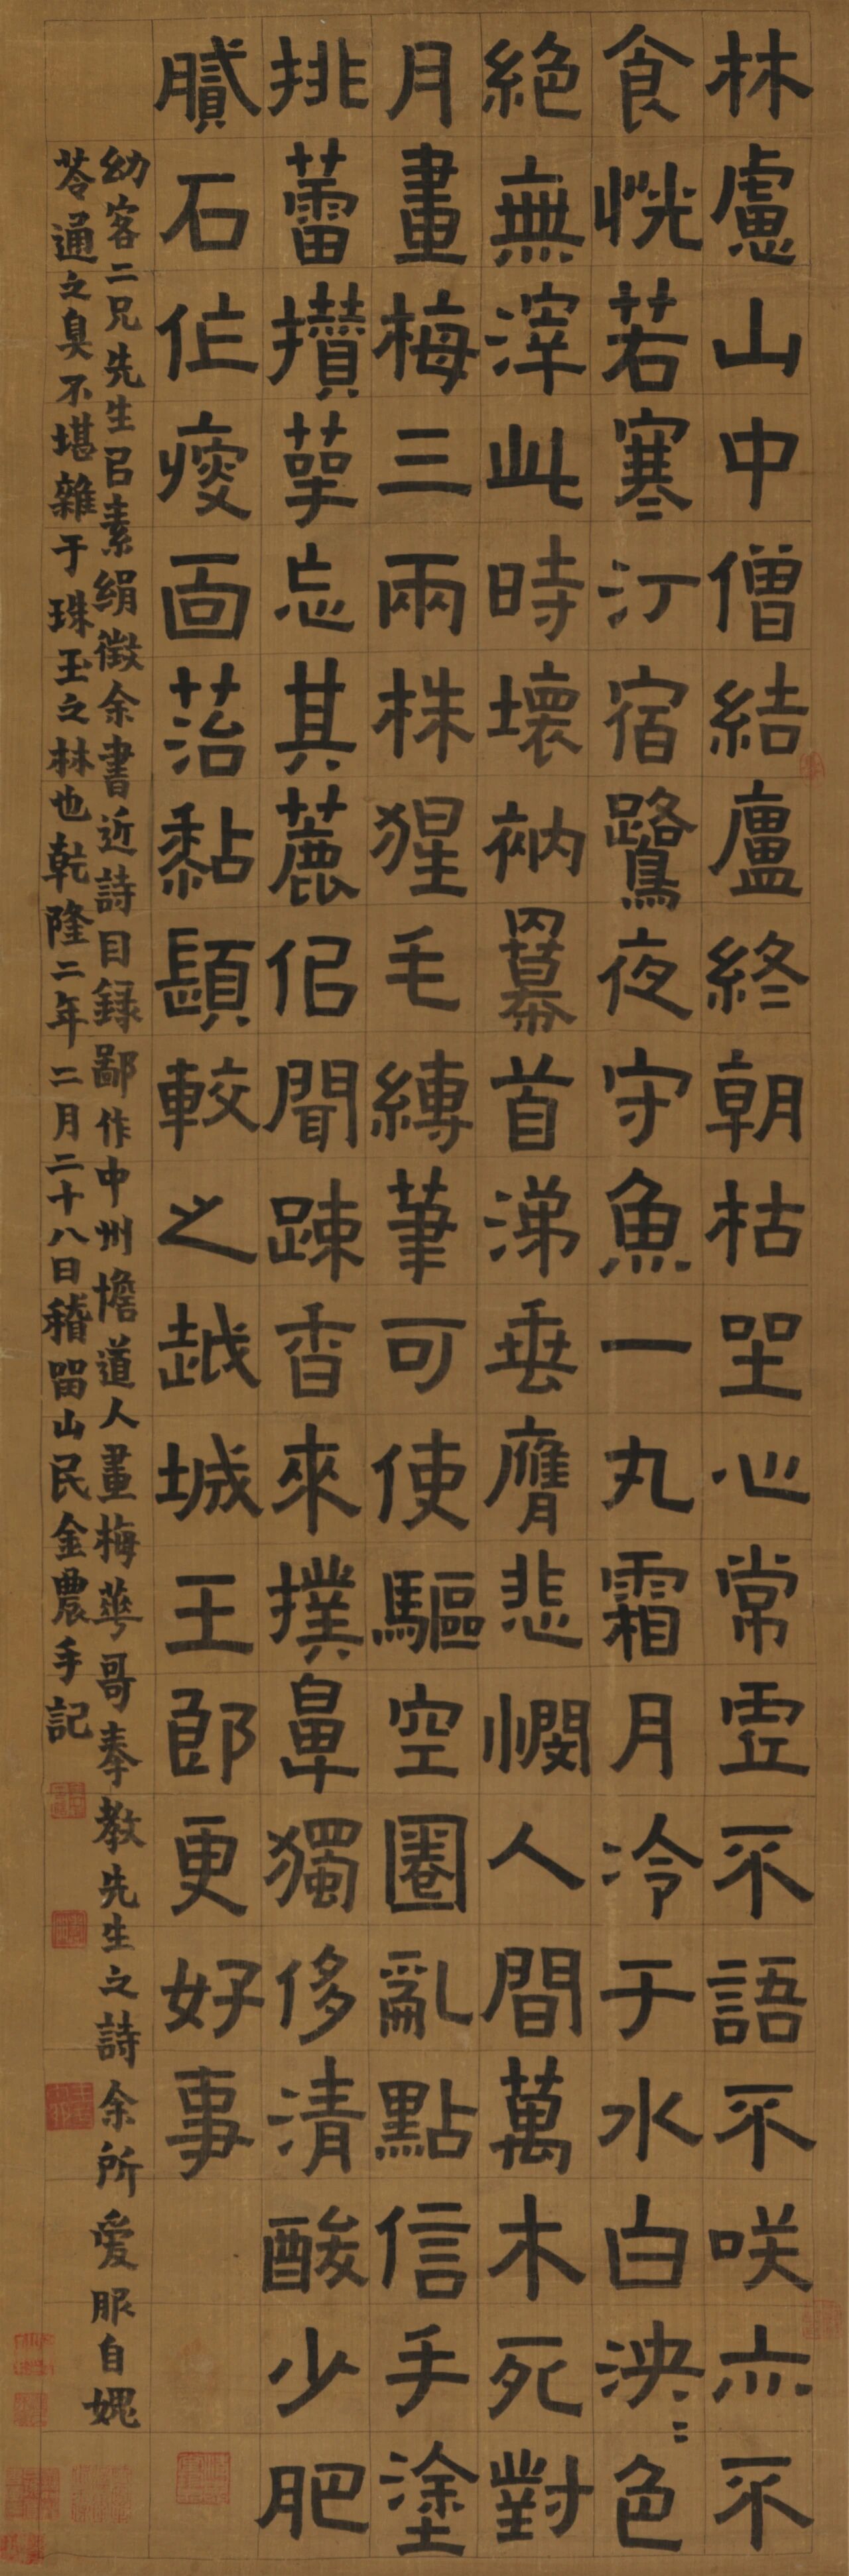 林慮山中僧結廬終朝枯坐心常霊不語不咲亦不
食恍若寒汀宿鷺夜守魚一丸霜月冷于水白泱〻色
絶無滓此時壞衲羃首涕垂膺悲憫人間萬木死對
月畫梅三兩株猩毛縛筆可使驅空圈亂點信手塗
挑蕾攢萼忘其麤但聞踈香來撲鼻獨侈清酸少肥
膩石作瘦面苔黏顋較之越城王郎更好事
幼客二兄先生㠯素絹徵余書近詩目録鄙作中州憺道人畫梅華哥奉教先生之詩余所爱服自媿
苓通之臭不堪雜于珠玉之林也乾隆二年二月二十八日稽畱山民金農手記